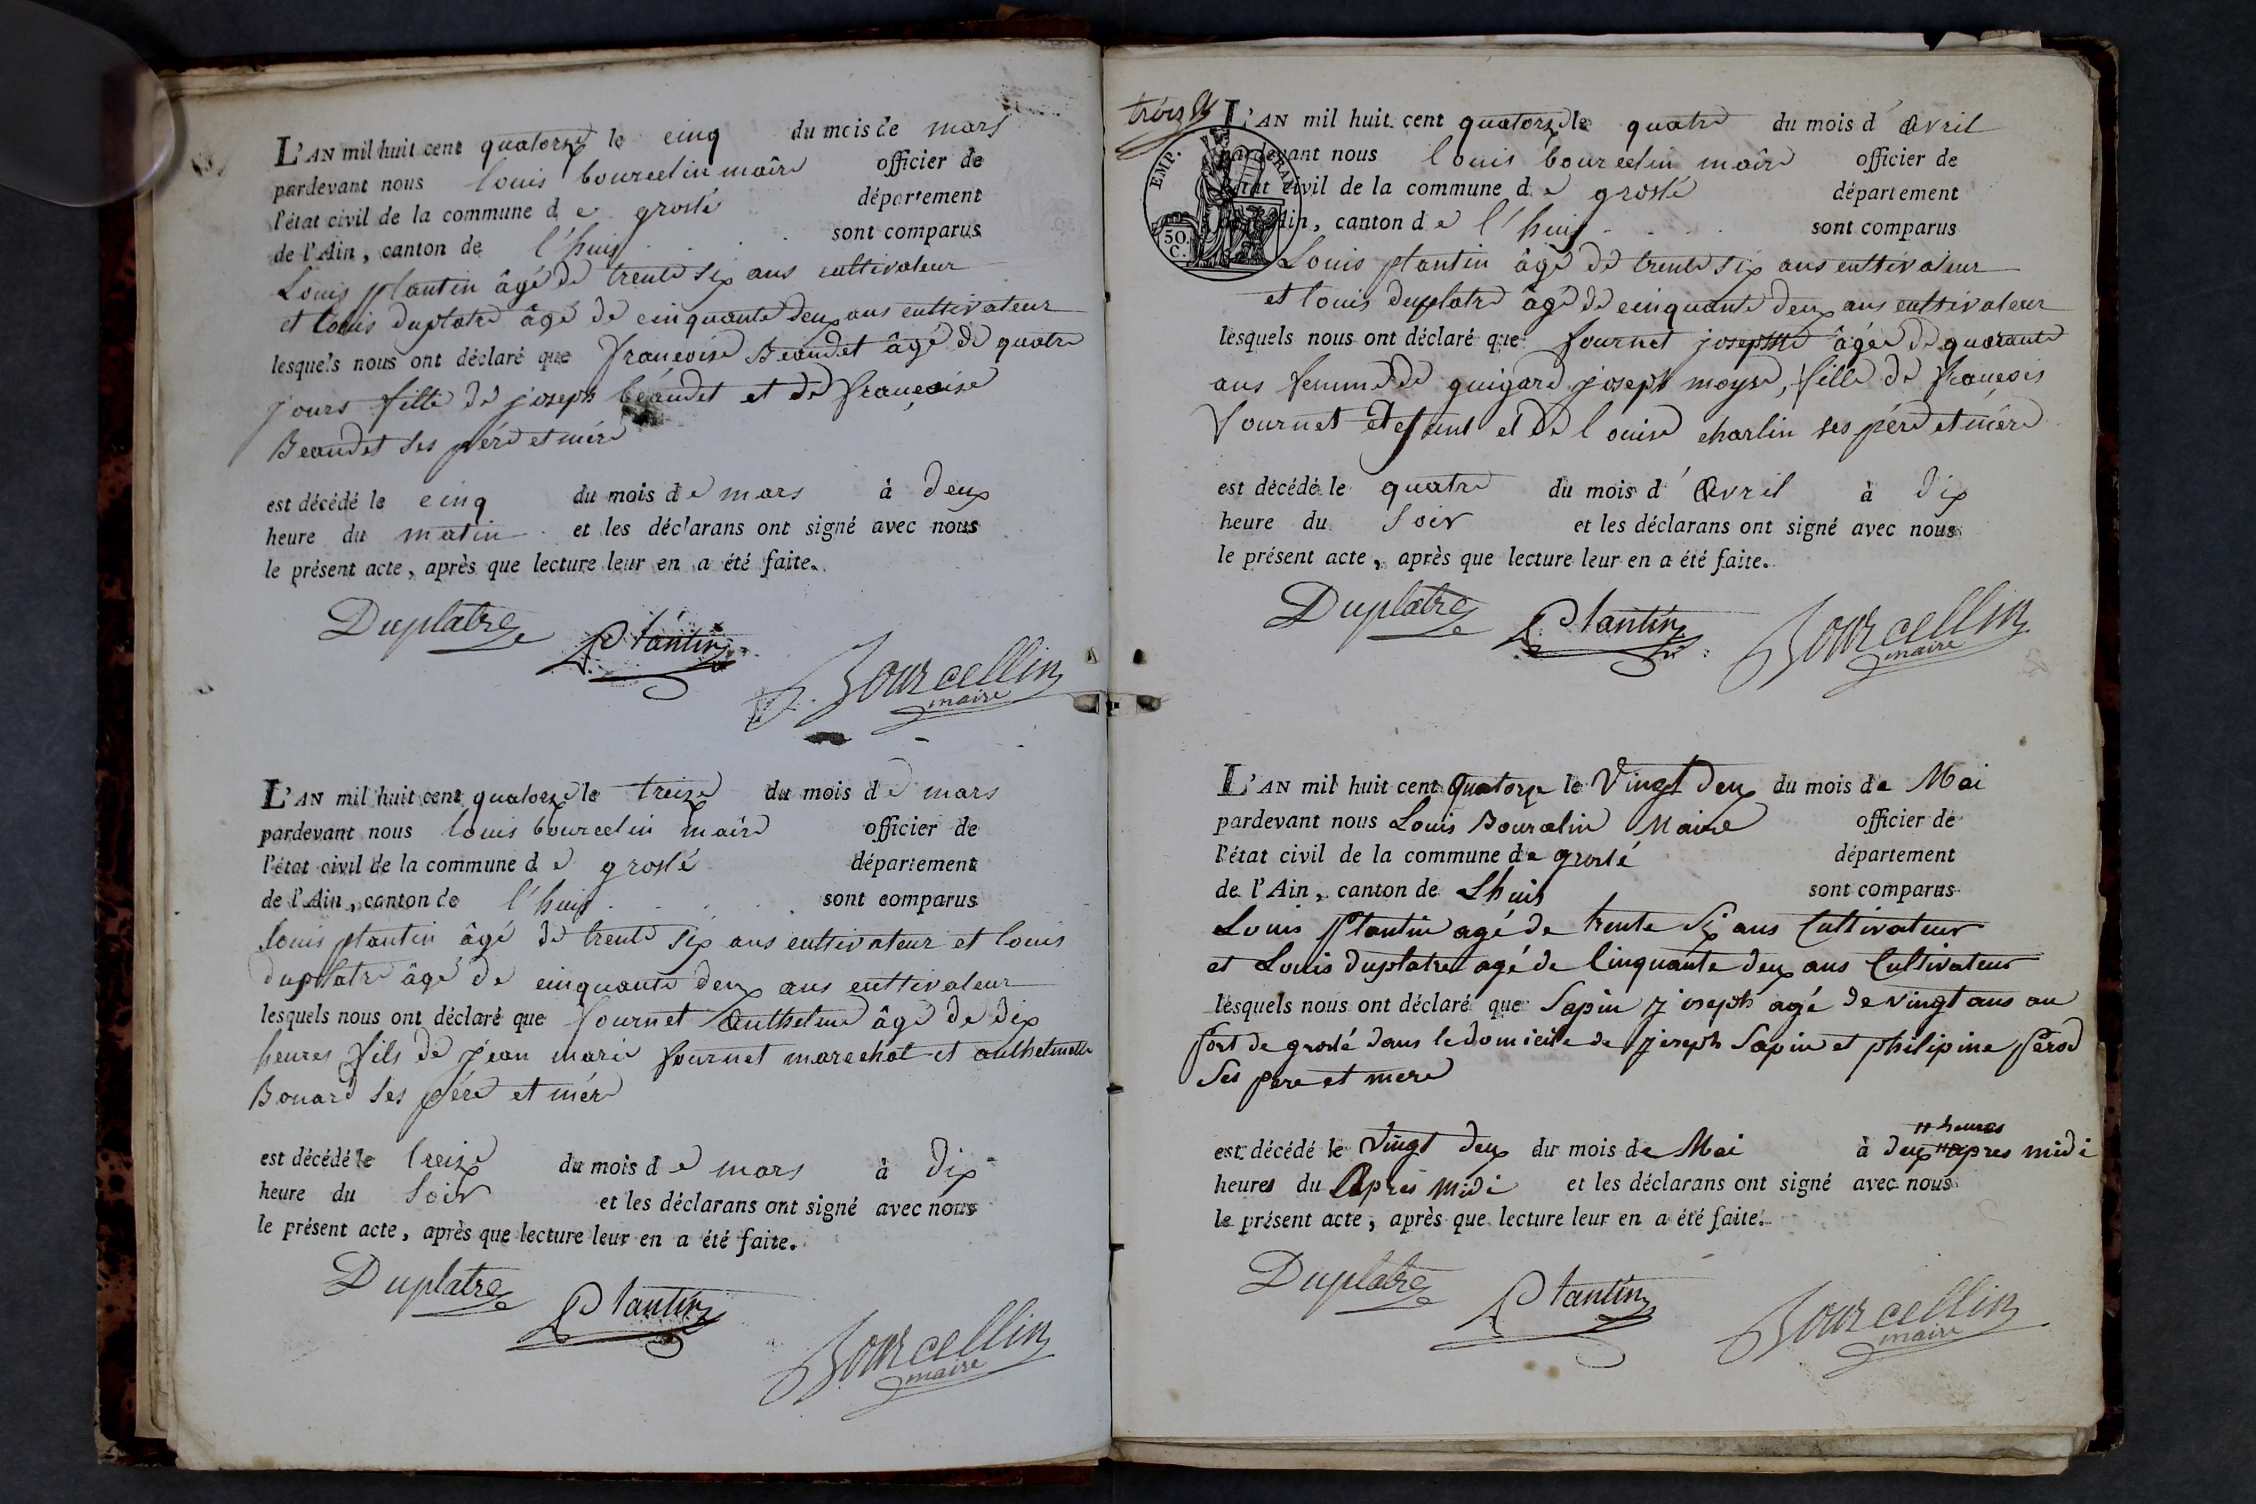 L'AN mil huit cent quatorze le cinq du mois de mars
pardevant nous louis bourcelin maire officier de
l'état civil de la commune de groslé département
de l'Ain, canton de l'huis sont comparus
Louis plantin âgé de trente six ans cultivateur
et louis duplatre âgé de cinquante deux ans cultivateur
lesquels nous ont déclaré que françoise Beaudet âgé de quatre
jours fille de joseph beaudet et de françoise
Beaudet ses père et mère
est décédé le cinq du mois de mars à deux
heure du matin et les déclarans ont signé avec nous
le présent acte, après que lecture leur en a été faite.
Duplatre Plantin
Bourcellin
maire
L'AN mil huit cent quatorze le treize du mois de mars
pardevant nous louis bourcelin maire officier de
l'état civil de la commune de groslé département
de l'Ain, canton de l'huis sont comparus
louis plantin âgé de trente six ans cultivateur et louis
duplatre âgé de cinquante deux ans cultivateur
lesquels nous ont déclaré que fournet Anthelme âgé de dix
heures fils de jean marie fournet marechal et anthelmette
Bouard ses père et mère
est décédé le treize du mois de mars à dix
heure du soir et les déclarans ont signé avec nous
le présent acte, après que lecture leur en a été faite.
Duplatre Plantin
Bourcellin
maire
trois
EMP. FRAN.
50.
C.
L'AN mil huit cent quatorze le quatre du mois d'Avril
pardevant nous louis bourcelin maire officier de
l'état civil de la commune de groslé département
de l'Ain, canton de l'huis sont comparus
Louis plantin âgé de trente six ans cultivateur
et louis duplatre âgé de cinquante deux ans cultivateur
lesquels nous ont déclaré que fournet josephte âgée de quarante
ans femme de guigard joseph moyse, fille de françois
fournet et de louise charlin ses père et mère
est décédé le quatre du mois d'Avril à dix
heure du soir et les déclarans ont signé avec nous
le présent acte, après que lecture leur en a été faite.
Duplatre Plantin Bourcellin
maire
L'AN mil huit cent quatorze le Vingt deux du mois de Mai
pardevant nous Louis Bourcelin Maire officier de
l'état civil de la commune de groslé département
de l'Ain, canton de Lhuis sont comparus
Louis Plantin agé de trente Six ans Cultivateur
et Louis duplatre agé de Cinquante deux ans Cultivateur
lesquels nous ont déclaré que Sapin joseph agé de vingt ans au
fort de groslé dans le domicile de joseph Sapin et philipine pérod
Ses pere et mere
heures
est décédé le Vingt deux du mois de Mai à deux apres midi
heures du Après Midi et les déclarans ont signé avec nous
le présent acte, après que lecture leur en a été faite.
Duplatre Plantin Bourcellin
maire